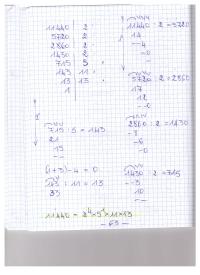 11440 | 2
5720 | 2
2860 | 2
1430 | 2
715 | 5
143 | 11
13 | 13
1
11440 : 2 = 5720
14
--4
-0
--
5720 : 2 = 2860
17
12
--0
-
715 : 5 = 143
21
15
--
2860 : 2 = 1430
8
-6
-0
-
(1+3)-4 = 0
143 : 11 = 13
33
--
1430 : 2 = 715
-3
10
--
11440 = 2⁴×5¹×11×13
- 63 -